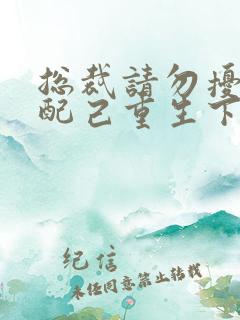 总裁請勿擾
配己重生下
纪信
未经同意禁止转载